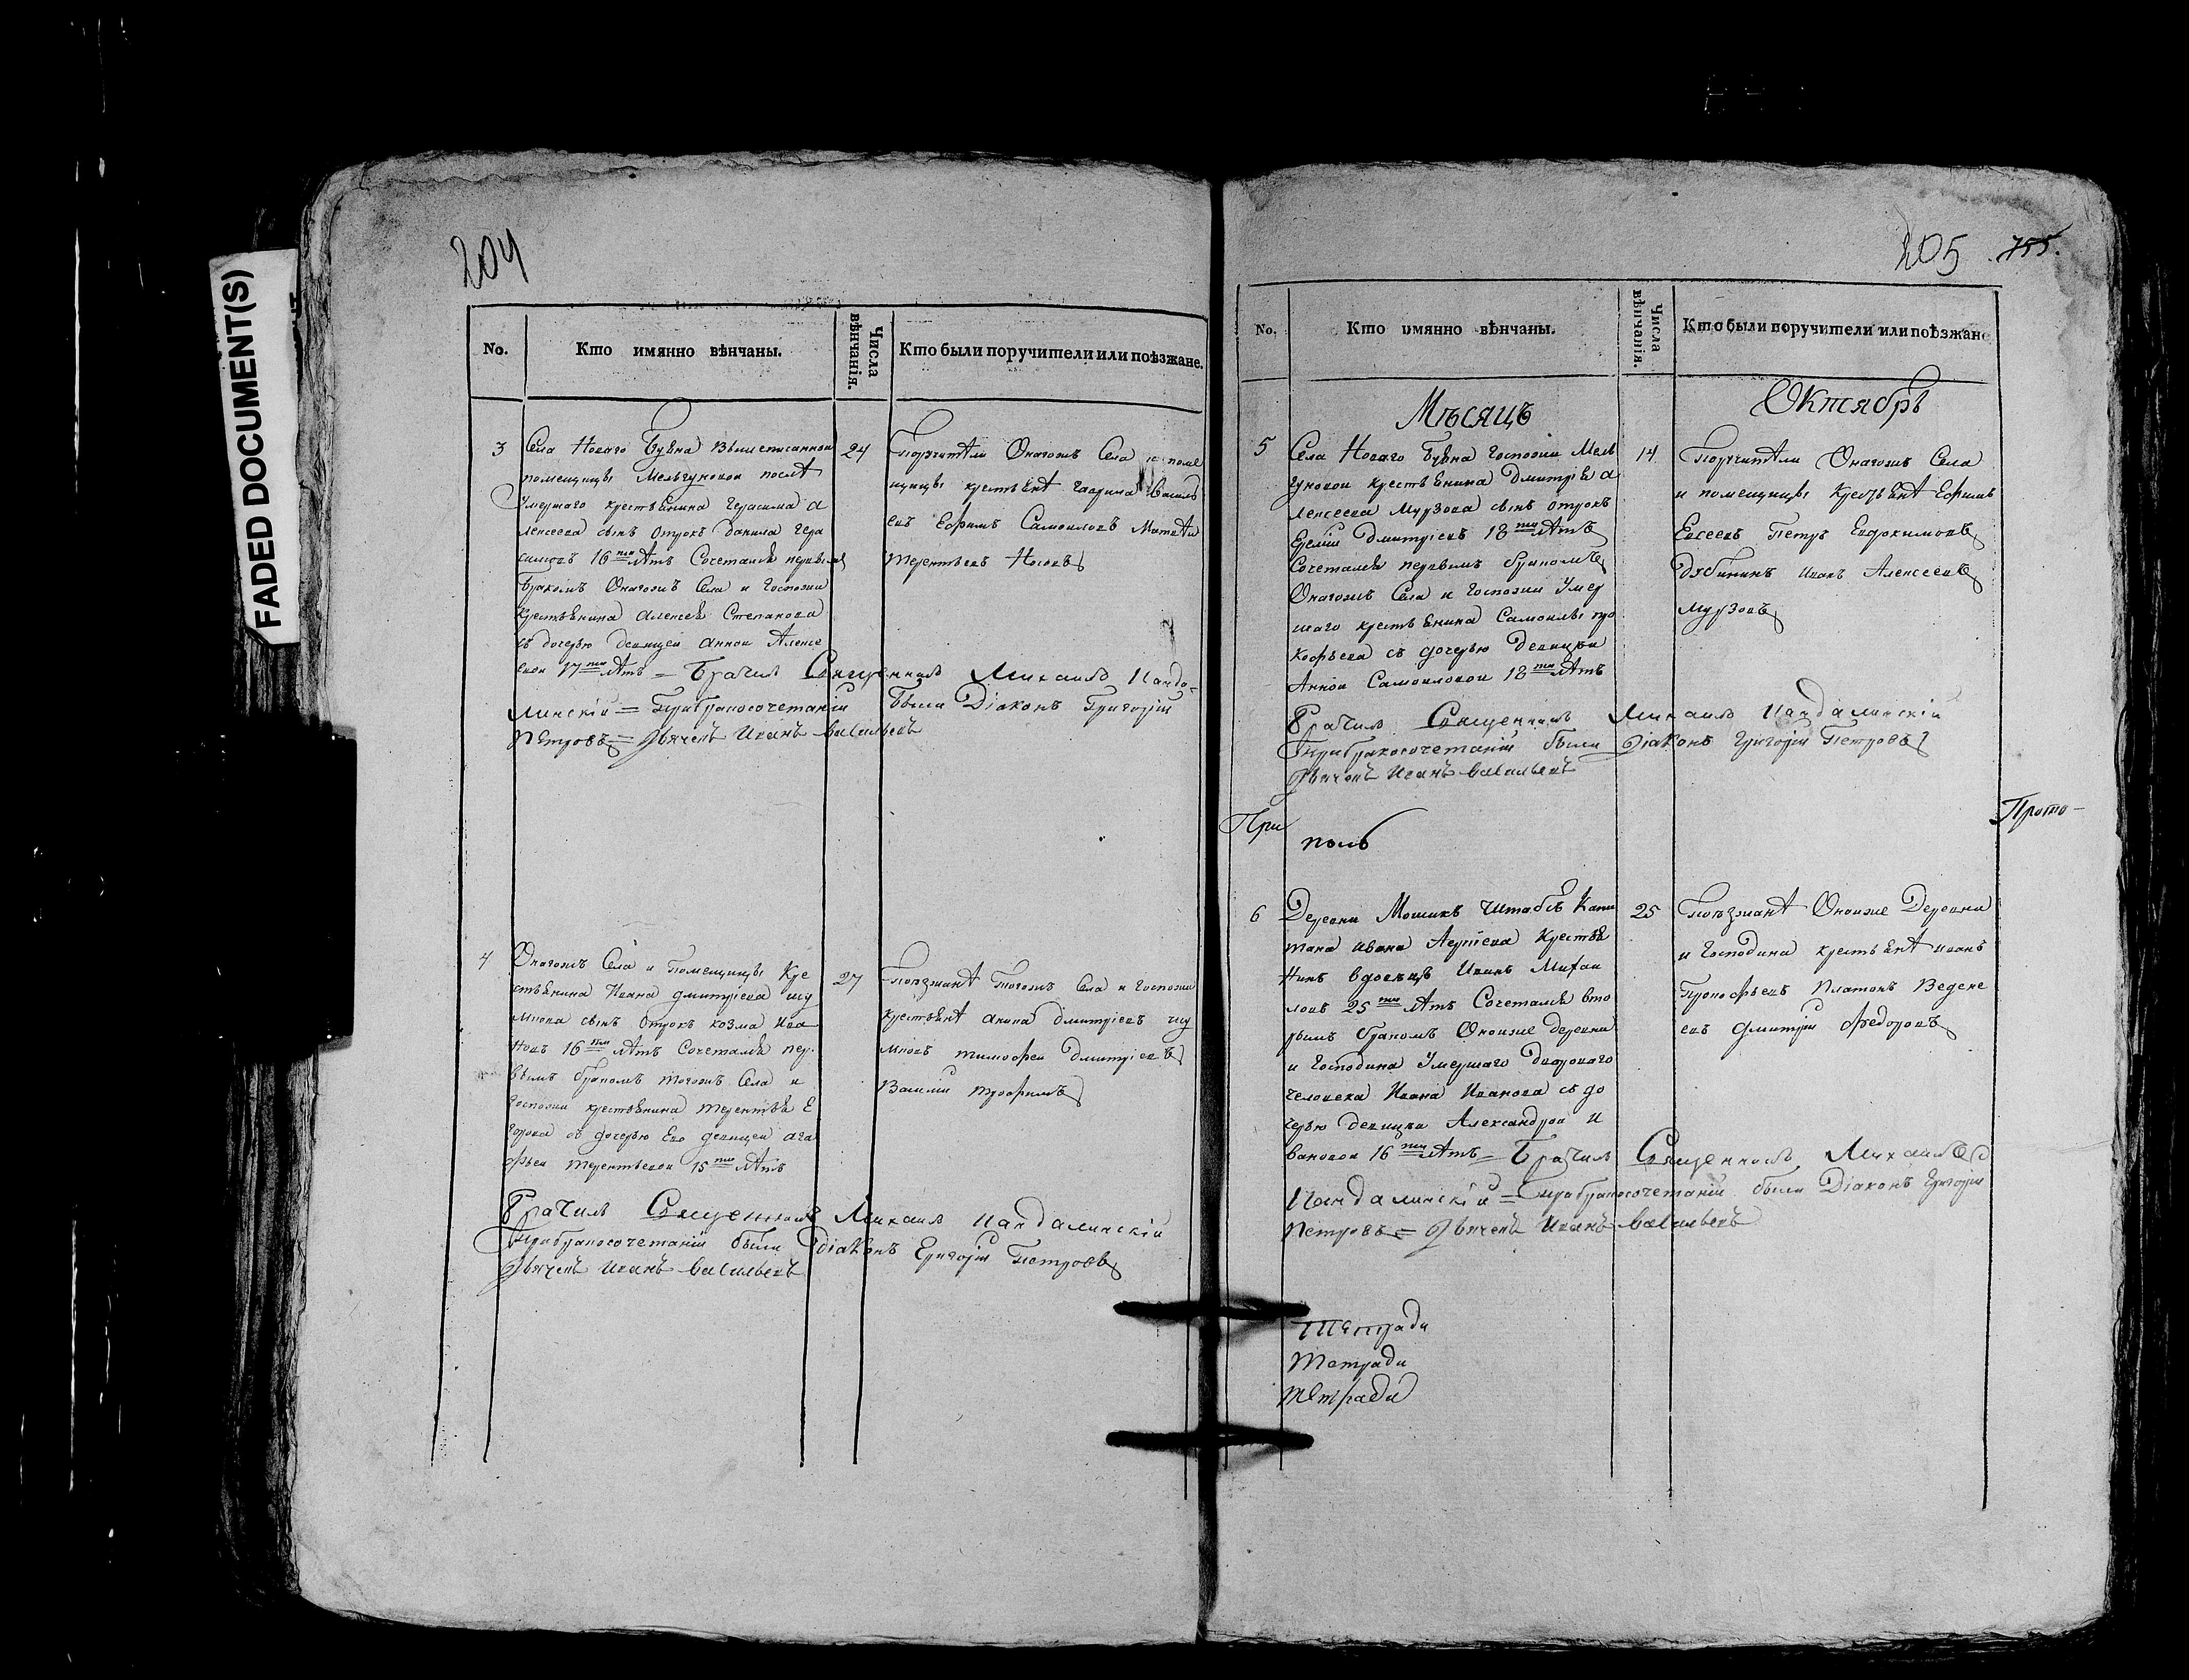 FADED DOCUMENT(S)
204
No.
Кто имянно вѣнчаны.
Числа вѣнчанія.
Кто были поручители или поѣзжане.
3
Села Новаго Бувна вышеписанной
помещицы Мельгуновой послѣ
Умершаго крестьянина Герасима А
лексеева сынъ отрокъ Данила Гера
симовъ 16ти лѣтъ Сочетался первымъ
бракомъ Онагожъ Села и Госпожи
Крестьянина Алексея Степанова
съ дочерью девицей Анной Алексе
евой 17ти лѣтъ = Брачилъ Священникъ Михаилъ
линскій = Прибракосочетаніи были Діаконъ Григорій
Петровъ = Дьячекъ Иванъ Васильевъ
24
Поручители Онагожъ Села и поме
щицы крестьянѣ Гаврила Василь
евъ Ефимъ Самоиловъ Матвѣй
Терентьевъ Носовъ
4
Онагожъ Села и Помещицы Кре
стьянина Ивана Дмитріева шу
милова сынъ Отрокъ Козма Ива
новъ 16ти лѣтъ Сочетался пер
вымъ бракомъ тогожъ Села и
Госпожи крестьянина Терентья Е
горова съ дочерью Его девицей Ага
фьей Терентьевой 15ти лѣтъ
Брачилъ Священникъ Михаилъ
Прибракосочетаніи были Діаконъ Григорій Петровъ
Дьячекъ Иванъ Васильевъ
27
Поѣзжанѣ Тогожъ Села и Госпожи
крестьянѣ Дмитріевъ шу
миловъ Тимофей Дмитріевъ
Василій Трофимъ
205
755.
No.
Кто имянно вѣнчаны.
Числа вѣнчанія.
Кто были поручители или поѣзжане
Мѣсяцъ
Октябрь
5
Села Новаго Бувна Госпожи Мель
гуновой крестьянина Дмитрія А
лексеева Мурзова сынъ отрокъ
Дмитріевъ 18ти лѣтъ
Сочетался первымъ бракомъ
Онагожъ Села и Госпожи Умер
шаго крестьянина Самоилы про
кофьева съ дочерью Девицей
Анной Самоиловой 18ти лѣтъ
Брачилъ Священникъ Михаилъ
Прибракосочетаніи были Діаконъ Григорій Петровъ
Дьячекъ Иванъ Васильевъ
14
Поручители Онагожъ Села
и помещицы Крестьянѣ Ефимъ
Евсеевъ Петръ Евдокимовъ
Дубининъ Иванъ Алексеевъ
Мурзовъ
При
Прото-
попъ
6
Деревни Мошикъ Штабсъ Капи
тана Ивана Крестья
нинъ вдовецъ Иванъ Михаи
ловъ 25ти лѣтъ Сочетался вто
рымъ бракомъ Оноиже деревни
и Господина Умершаго Двороваго
человека Ивана Иванова съ до
черью девицей Александрой И
вановой 16ти лѣтъ = Брачилъ Священникъ Михаилъ
= Прибракосочетаніи были Діаконъ Григорій
Петровъ = Дьячекъ Иванъ Васильевъ
25
Поѣзжанѣ Оноиже Деревни
и Господина крестьянѣ Иванъ
Прокофьевъ Платонъ Ведене
евъ Дмитрій Федоровъ
Тетради
Тетради
Тетради